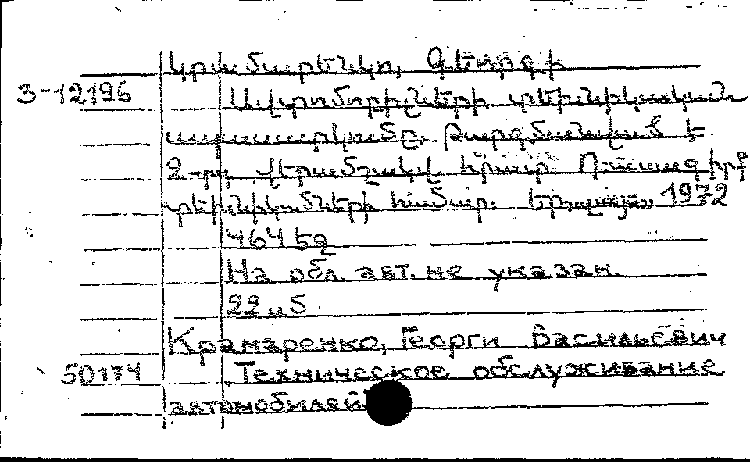 Կրամարենկո, Գեորգի
3-12196 Ավտոմոբիլների տեխնիկական
սպասարկումը. Թարգմանված է
2-րդ վերամշակվ. հրատ. Դասագիրք
տեխնիկումների համար. Երևան, 1972
464 եջ
На обл. авт. не указан.
Крамаренко, Георги Васильевич
50174 Техническое обслуживание
автомобилей